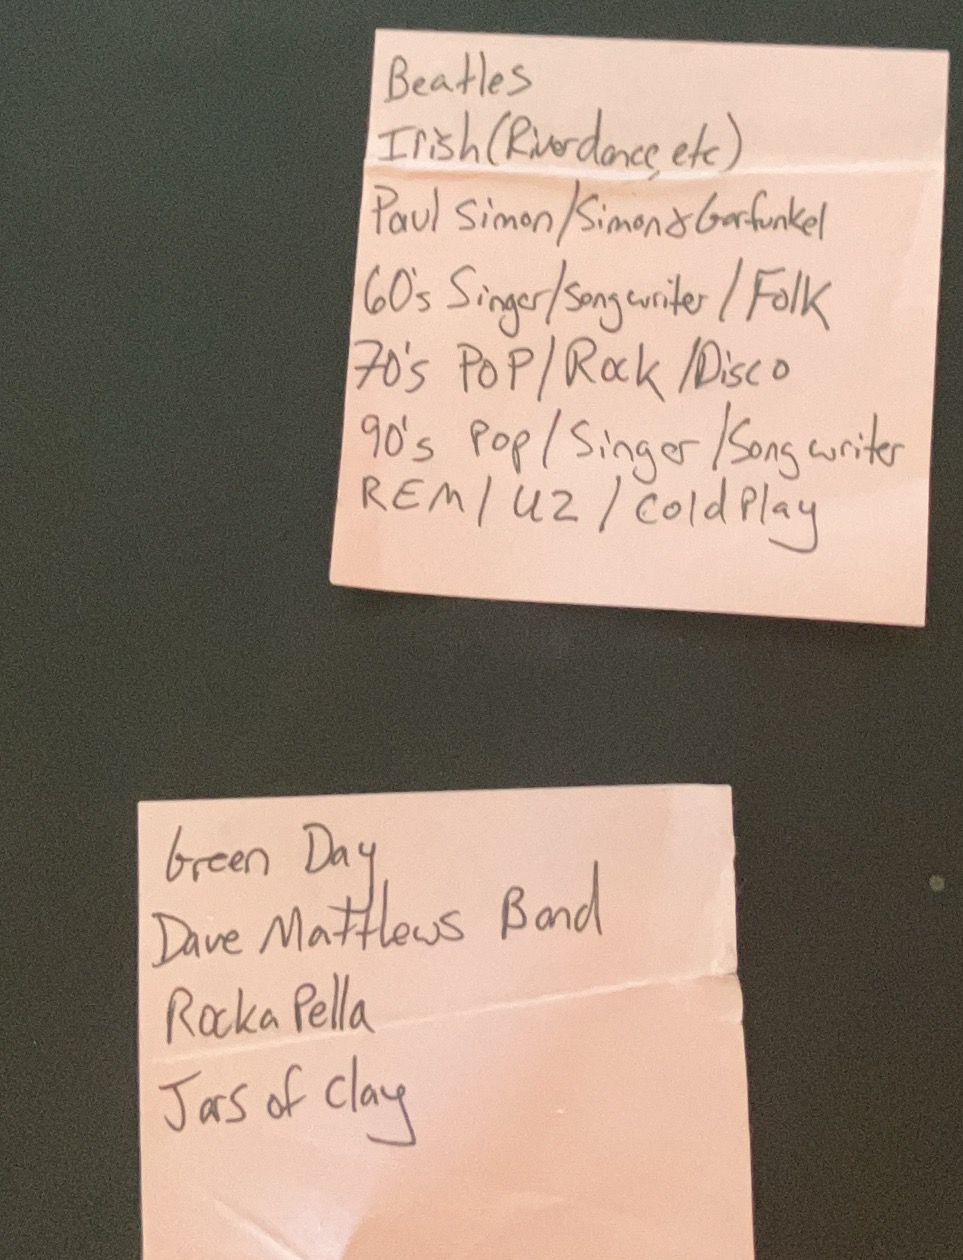 Beatles
Irish (Riverdance, etc)
Paul Simon/Simon & Garfunkel
60's Singer/songwriter/Folk
70's POP/Rock/Disco
90's Pop/Singer/Songwriter
REM/U2/Coldplay
Green Day
Dave Matthews Band
Rocka Pella
Jars of Clay